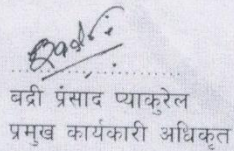 बद्री प्रंसाद प्याकुरेल
प्रमुख कार्यकारी अधिकृत